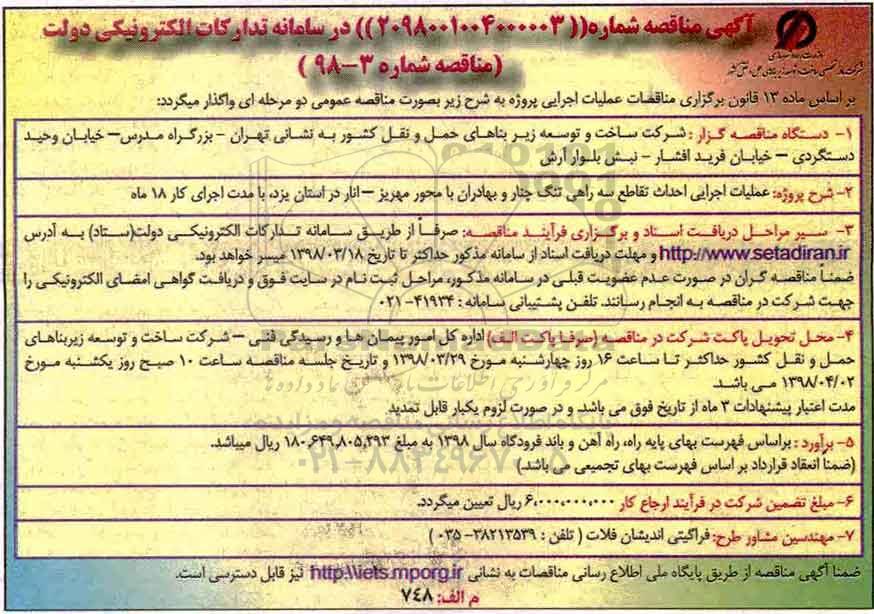 آگهی مناقصه شماره(( ۲۰۹۸۰۰۱۰۰۴۰۰۰۰۰۳ )) در سامانه تدارکات الکترونیکی دولت
(مناقصه شماره ۳-۹۸ )
شرکت مادر تخصصی ساخت و توسعه زیربناهای حمل و نقل کشور
بر اساس ماده ۱۳ قانون برگزاری مناقصات عملیات اجرایی پروژه به شرح زیر بصورت مناقصه عمومی دو مرحله ای واگذار میگردد:
۱- دستگاه مناقصه گزار : شرکت ساخت و توسعه زیر بناهای حمل و نقل کشور به نشانی تهران - بزرگراه مدرس– خیابان وحید
دستگردی – خیابان فرید افشار - نبش بلوار آرش
۲- شرح پروژه: عملیات اجرایی احداث تقاطع سه راهی تنگ چنار و بهادران با محور مهریز –انار در استان یزد، با مدت اجرای کار ۱۸ ماه
۳- سیر مراحل دریافت اسناد و برگزاری فرآیند مناقصه: صرفاً از طریق سامانه تدارکات الکترونیکی دولت(ستاد) به آدرس
http://www.setadiran.ir و مهلت دریافت اسناد از سامانه مذکور حداکثر تا تاریخ ۱۳۹۸/۰۳/۱۸ میسر خواهد بود.
ضمناً مناقصه گران در صورت عدم عضویت قبلی در سامانه مذکور، مراحل ثبت نام در سایت فوق و دریافت گواهی امضای الکترونیکی را
جهت شرکت در مناقصه به انجام رسانند. تلفن پشتیبانی سامانه : ۴۱۹۳۴- ۰۲۱
۴- محل تحویل پاکت شرکت در مناقصه (صرفا پاکت الف) اداره کل امور پیمان ها و رسیدگی فنی – شرکت ساخت و توسعه زیربناهای
حمل و نقل کشور حداکثر تا ساعت ۱۶ روز چهارشنبه مورخ ۱۳۹۸/۰۳/۲۹ و تاریخ جلسه مناقصه ساعت ۱۰ صبح روز یکشنبه مورخ
۱۳۹۸/۰۴/۰۲ می باشد.
مدت اعتبار پیشنهادات ۳ ماه از تاریخ فوق می باشد. و در صورت لزوم یکبار قابل تمدید
مرکز فرآوری اطلاعات پارس نماد داده ها
پایگاه اطلاع رسانی مناقصه و مزایده
۰۲۱-۸۸۳۴۹۶۷۰-۵
۵- برآورد : براساس فهرست بهای پایه راه، راه آهن و باند فرودگاه سال ۱۳۹۸ به مبلغ ۱۸۰,۶۴۹,۸۰۵,۲۹۳ ریال میباشد.
(ضمناً انعقاد قرارداد بر اساس فهرست بهای تجمیعی می باشد.)
۶- مبلغ تضمین شرکت در فرآیند ارجاع کار ۶,۰۰۰,۰۰۰,۰۰۰ ریال تعیین میگردد.
۷- مهندسین مشاور طرح: فراگیتی اندیشان فلات ( تلفن : ۳۸۲۱۳۵۳۹- ۰۳۵ )
ضمنا آگهی مناقصه از طریق پایگاه ملی اطلاع رسانی مناقصات به نشانی http:\\iets.mporg.ir نیز قابل دسترسی است.
م الف: ۷۴۸